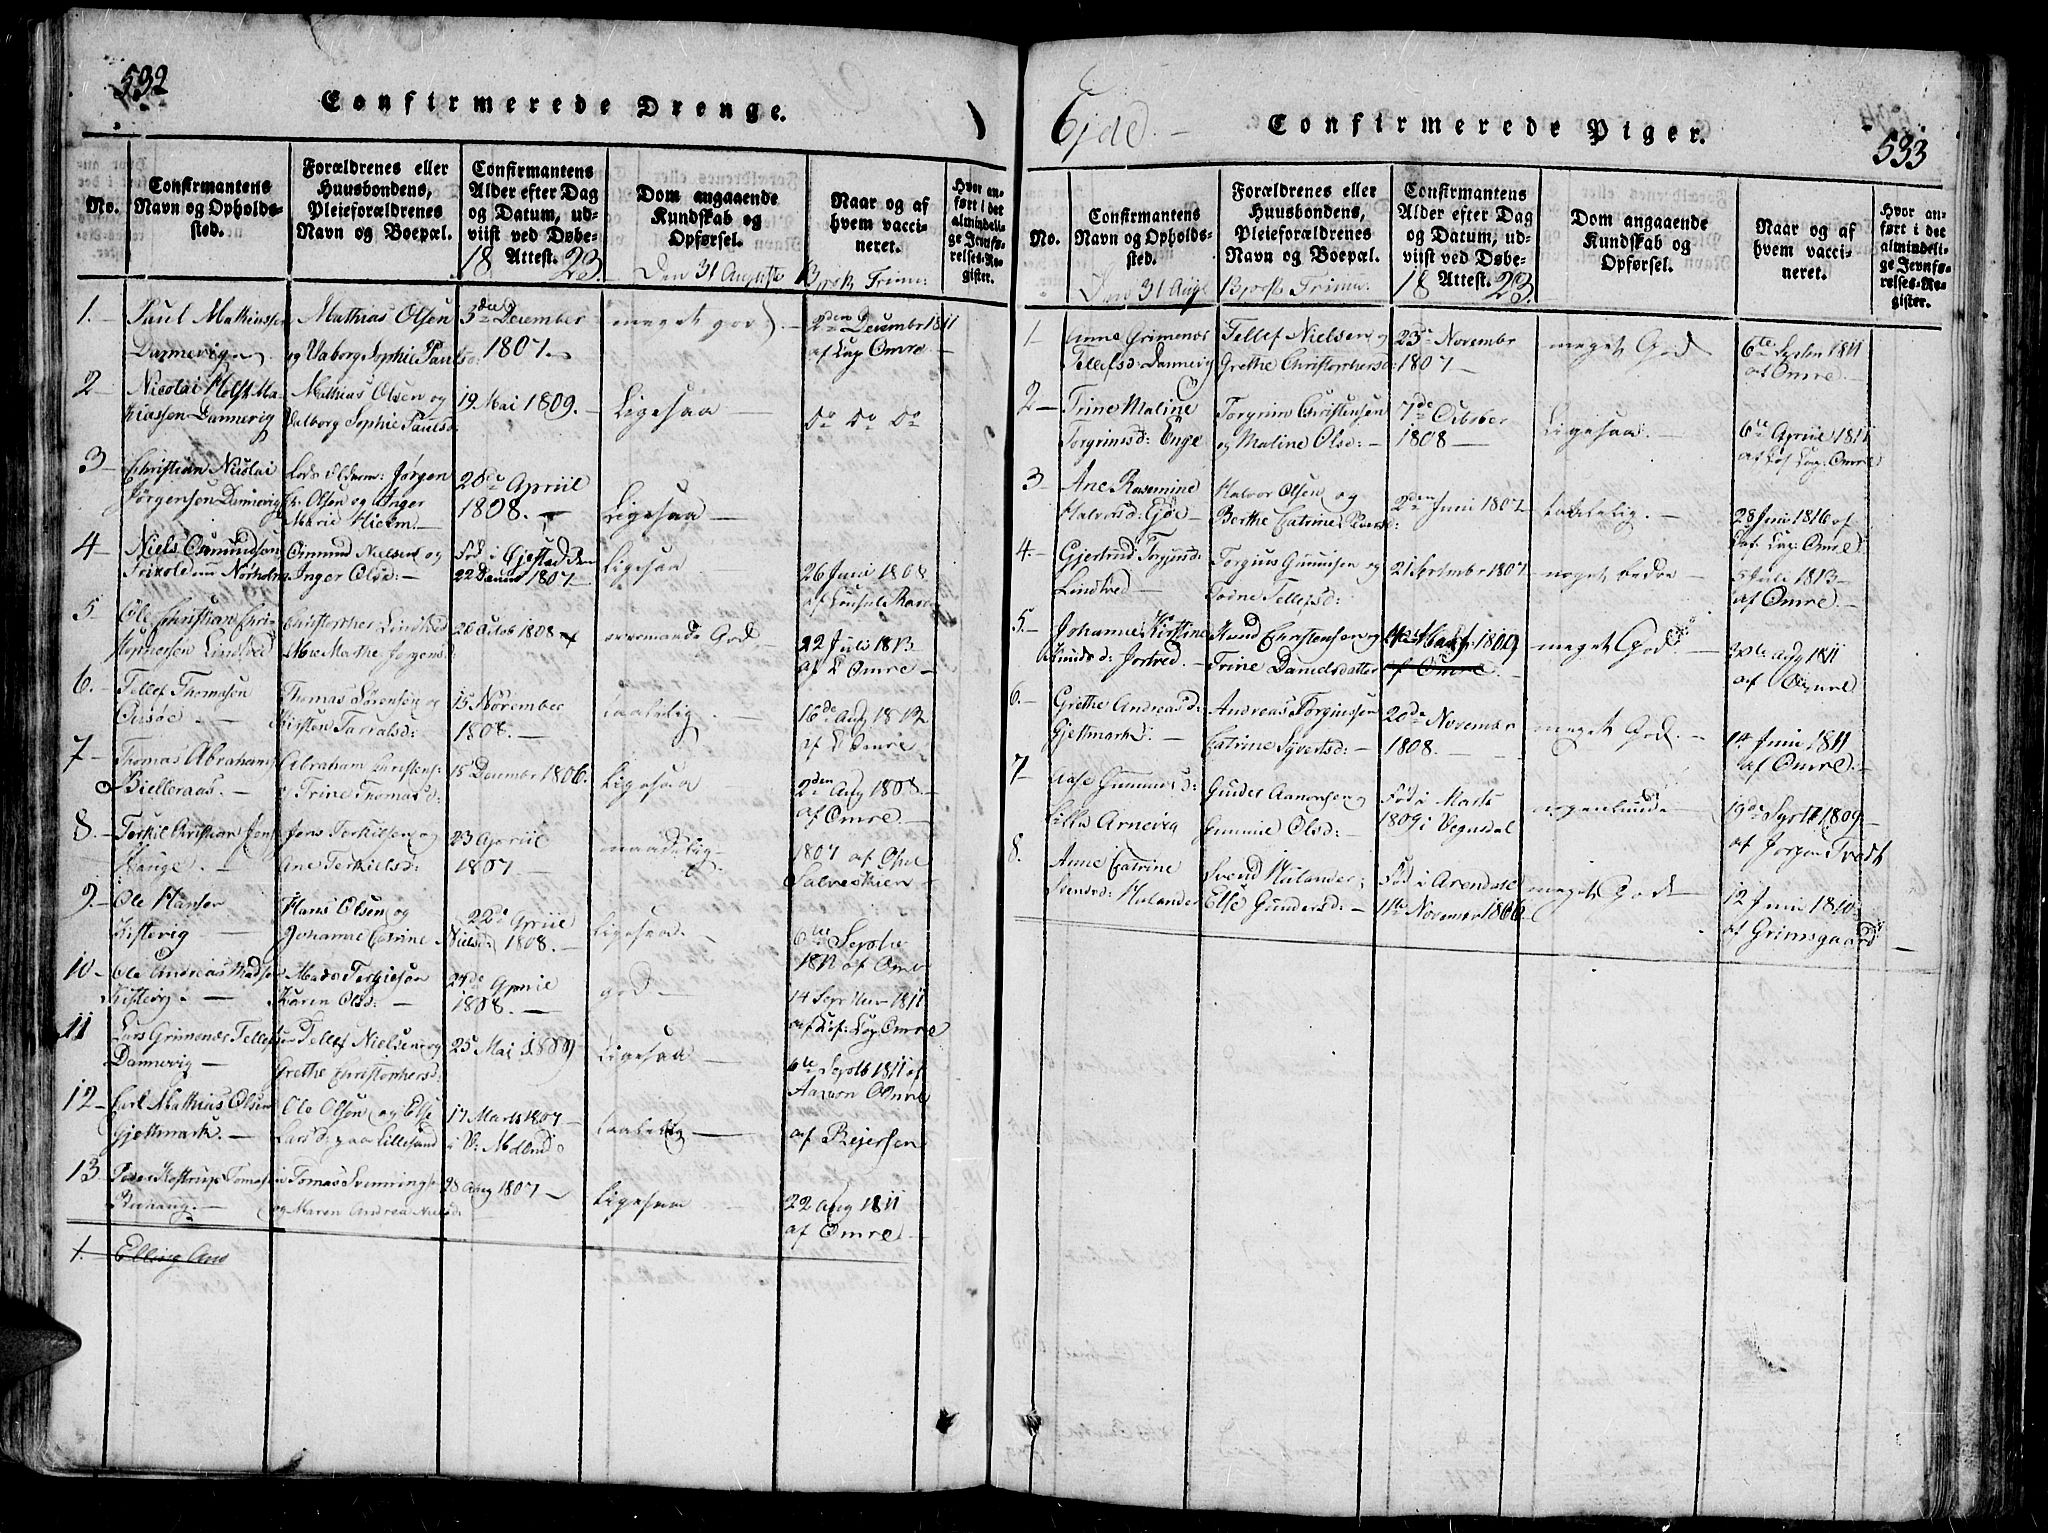 532
Confirmerede Drenge.
No.
Confirmantens
Navn og Opholds-
sted.
Forældrenes eller
Huusbondens,
Pleieforældrenes
Navn og Boepæl.
Confirmantens
Alder efter Dag
og Datum, ud-
viist ved Døbe-
Attest.
1823.
Dom angaaende
Kundskab og
Opførsel.
Naar og af
hvem vacci-
neret.
Hvor an-
ført i det
almindeli-
ge Jevnfø-
relses-Re-
gister.
Den 31 August
1. Paul Mathiassen
Dannevig
Mathias Olsen
og Valborg Sophie Paulsd:
3de December
1807.
meget god.
2den Decembr 1811
af Omre
2 Nicolai Holst Ma-
thiassen Dannevig
Mathias Olsen og
Valborg Sophie Paulsd:
19 Mai 1809.
Ligesaa
Do Do Do
3 Christian Nicolai
Jørgensen Dannevig
Lods Oldrm: Jørgen
Chr. Olsen og Inger
Marie
20de Apriil
1808.
Ligesaa
4 Niels Osmundsen
Osmund Nielsen og
Inger Olsd:
Fød i Gjestad den
22 1807
Ligesaa
26 Juni 1808
af
5 Ole Christian Chri-
stophersen Lindtved
Christopher Lindtved
Marthe Jørgensd
20 Octob 1808
God
22 Juli 1813
af L Omre
6. Tellef Thomasen
Thomas Sørensen og
Kirsten Tarralsd:
15 November
1808.
taalelig
16de Aug 1812
af L Omre
7 Thomas Abrahams
Bielleraas.
Abraham Christens:
og Trine Thomasd:
15 Decembr 1806.
Ligesaa
2den Aug 1808.
af Omre
8. Terkil Christian Jens
Hauge.
Jens Terkilsen og
Ane Terkielsd:
23 Apriil
1807
maadelig
1807 af
9 Ole Hansen
Kistevig
Hans Olsen og
Johanne Catrine
Nielsd:
22de Apriil
1808.
Ligesaa
6te Septbr
1811 af Omre
10 Ole Andreas Madsen
Kistevig
Mads Tergiesen
Karen Olsd:
24de Apriil
1808.
god
14 September 1811
af Omre
11 Lars Grimenæs Tellefsen
Dannevig
Tellef Nielsen og
Grethe Christophersd:
25 Mai 1809
Ligesaa
6te Septb 1811 af
Aanon Omre
12 Carl Mathias Olsen
Gjettmark.
Ole Olsen og Else
Larsd: paa Lillesand
17 Marts 1807
i V: Molands
taalelig
af Reiersen
13 Peder Kastrup Tomasen
Tomas Svenningsen
og Maren Andrea Nielsd.
28 Aug 1807
Ligesaa
22 Aug 1811
af Omre
1. Elling
Eyde.
Confirmerede Piger.
533
No.
Confirmantens
Navn og Opholds-
sted.
Forældrenes eller
Huusbondens,
Pleieforældrenes
Navn og Boepæl.
Confirmantens
Alder efter Dag
og Datum, ud-
viist ved Døbe-
Attest.
1823.
Dom angaaende
Kundskab og
Opførsel.
Naar og af
hvem vacci-
neret.
Hvor an-
ført i det
almindeli-
ge Jevnfø-
relses-Re-
gister.
Den 31 Aug
1 Anne Grimenæs
Tellefsd: Dannevig
Tellef Nielsen og
Grethe Christophersd:
23 November
1807
meget God
6te Septbr 1811
af Omre.
2 Trine Maline
Torgrimsd: Enge
Torgrim Christensen
og Maline Olsd:
7de October
1808
Ligesaa.
6te Apriil 1811
af Omre
3 Ane Rosemine
Halvorsd: Eyde
Halvor Olsen og
Berthe Catrine
2den Juni 1807
taalelig.
28 Juni 1816 af
Omre
4 Gjertrud Torjusd:
Lindtved
Torgius Gunnisen og
Tone Tellefsd:
21 September 1807
noget bedre
5 Juli 1813
af Omre
5. Johanne Kirstine
Amundsd:
Amund Christensen og
Trine Danielsdatter
1809
af Omre
meget God
Aug 1811
af Omre
6. Grethe Andreasd:
Gjettmark
Andreas Torgiussen
Catrine Syvertsd:
20de November
1808.
meget God.
1te Juni 1811
af Omre.
7 Aase Gunnild:
Lille Arnevig
Gudte Aanonsen og
Gunnild Olsd:
Fød i Marts
1809 i Vegusdal
19de 1809
af Jørgen Tvedt
8. Anne Catrine
Svendsd: Hulander
Svend Hulander
Else Gundersd:
Fød i Arendal
11te November 1806
meget God
12 Juni 1810
af Grimsgaard